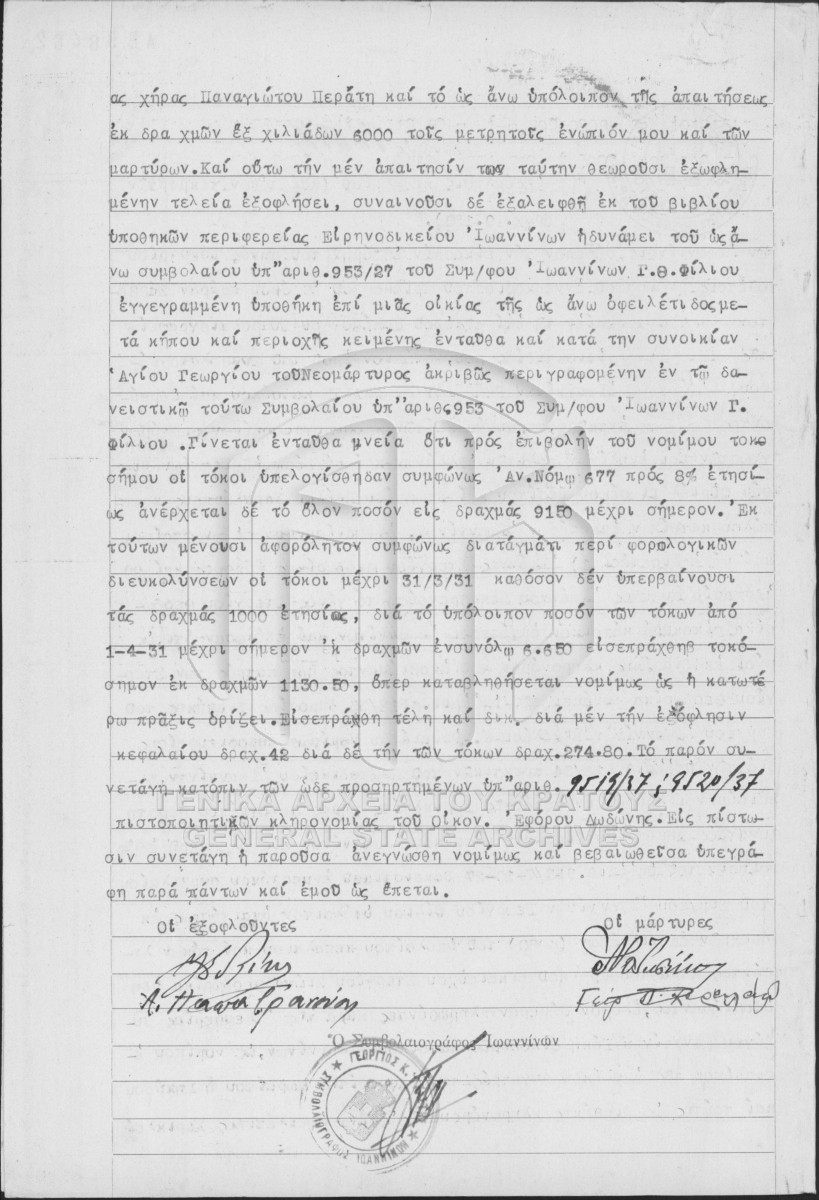 ας χήρας Παναγιώτου Περάτη καί τό ὡς ἄνω ὑπόλοιπον τῆς ἀπαιτήσεως
ἐκ δρα χμῶν ἕξ χιλιάδων 6000 τοῖς μετρητοῖς ἐνώπιόν μου καί τῶν
μαρτύρων.Καί οὕτω τήν μέν ἀπαιτησίν των ταύτην θεωροῦσι ἐξωφλη-
μένην τελεία ἐξοφλήσει, συναινοῦσι δέ ἐξαλειφθῆ ἐκ τοῦ βιβλίου
ὑποθηκῶν περιφερείας Εἰρηνοδικείου Ἰωαννίνων ἡδυνάμει τοῦ ὡς ἄ-
νω συμβολαίου ὑπ"ἀριθ.953/27 τοῦ Συμ/φου Ἰωαννίνων Γ.Θ.Φίλιου
ἐγγεγραμμένη ὑποθήκη ἐπί μιᾶς οἰκίας τῆς ὡς ἄνω ὀφειλέτιδος με-
τά κήπου καί περιοχῆς κειμένης ἐνταῦθα καί κατά την συνοικίαν
Ἁγίου Γεωργίου τοῦ Νεομάρτυρος ἀκριβῶς περιγραφομένην ἐν τῷ δα-
νειστικῷ τούτω Συμβολαίου ὑπ"ἀριθς953 τοῦ Συμ/φου Ἰωαννίνων Γ.
Φίλιου .Γίνεται ἐνταῦθα μνεία ὅτι πρός ἐπιβολήν τοῦ νομίμου τοκο
σήμου οἱ τόκοι ὑπελογίσθηδαν συμφώνως Ἀν.Νόμῳ 677 πρός 8% ἐτησί-
ως ἀνέρχεται δέ τό ὅλον ποσόν εἰς δραχμάς 9150 μέχρι σήμερον.Ἐκ
τούτων μένουσι ἀφορόλητον συμφώνως διατάγμάτι περί φορολογικῶν
διευκολύνσεων οἱ τόκοι μέχρι 31/3/31 καθόσον δέν ὑπερβαίνουσι
τάς δραχμάς 1000 ἐτησίως, διά τό ὑπόλοιπον ποσόν τῶν τόκων ἀπό
1-4-31 μέχρι σήμερον ἐκ δραχμῶν ἐνσυνόλῳ 6.650 εἰσεπράχθηβ τοκό-
σημον ἐκ δραχμῶν 1130.50, ὅπερ καταβληθήσεται νομίμως ὡς ἡ κατωτέ
ρω πρᾶξις ὁρίζει.Εἰσεπράχθη τέλη καί δικ. διά μέν τήν ἐξόφλησιν
κεφαλαίου δραχ.42 διά δέ τήν τῶν τόκων δραχ.274.80.Τό παρόν συ-
νετάγη κατόπιν τῶν ὧδε προσηρτημένων ὑπ"ἀριθ. 9519/37 ; 9520/37
πιστοποιητικῶν κληρονομίας τοῦ Οἰκον. Ἐφόρου Δωδώνης.Εἰς πίστω-
σιν συνετάγη ἡ παροῦσα ἀνεγνώσθη νομίμως καί βεβαιωθεῖσα ὑπεγρά-
φη παρά πάντων καί ἐμοῦ ὡς ἕπεται.
Οἱ ἐξοφλοῦντες Οἱ μάρτυρες
Ὁ Συμβολαιογράφος Ἰωαννίνων
ΓΕΩΡΓΙΟΣ Κ.
ΣΥΜΒΟΛΑΙΟΓΡΑΦΟΣ ΙΩΑΝΝΙΝΩΝ
ΓΕΝΙΚΑ ΑΡΧΕΙΑ ΤΟΥ ΚΡΑΤΟΥΣ
GENERAL STATE ARCHIVES